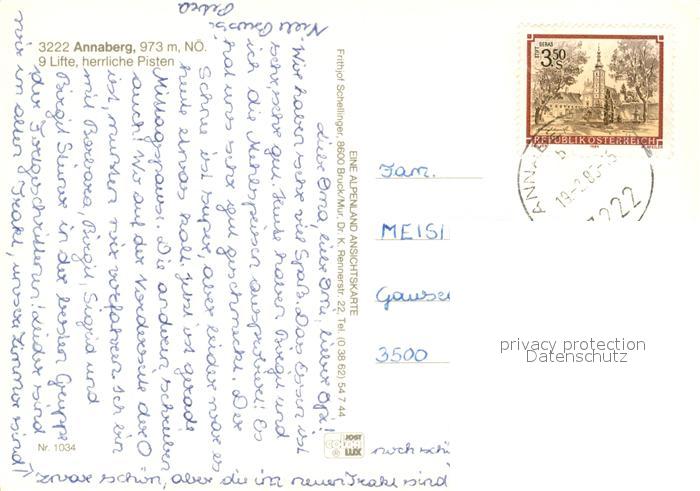 3222 Annaberg, 973 m, NÖ.
9 Lifte, herrliche Pisten
Liebe Oma, liebe Omi, lieber Opi!
Wir haben sehr viel Spaß. Das Essen ist
sehr, sehr gut. Heute haben Birgit und
ich die Mehlspeisen ausprobiert! Es
hat uns sehr gut geschmeckt. Der
Schnee ist super, aber leider war es
heute etwas kalt. Jetzt ist gerade
Mittagspause. Die anderen schreiben
auch! Wo auf der Vorderseite der O
ist, mussten wir vorfahren. Ich bin
mit Barbara, Birgit, Sigrid und
Birgit in der besten Gruppe
der Fortgeschrittenen! Leider sind
wir im alten Trakt, unsere Zimmer sind
zwar schön, aber die im neuen Trakt sind
noch schö
Petra
EINE ALPENLAND ANSICHTSKARTE
Frithjof Schellinger, 8600 Bruck/Mur, Dr. K. Rennerstr. 22, Tel. (0 38 62) 54 7 44
Nr. 1034
JOST
COLOR
LUX
3.50
S
STIFT
GERAS
REPUBLIK ÖSTERREICH
ANN
3222
Fam.
MEISI
3500
privacy protection
Datenschutz